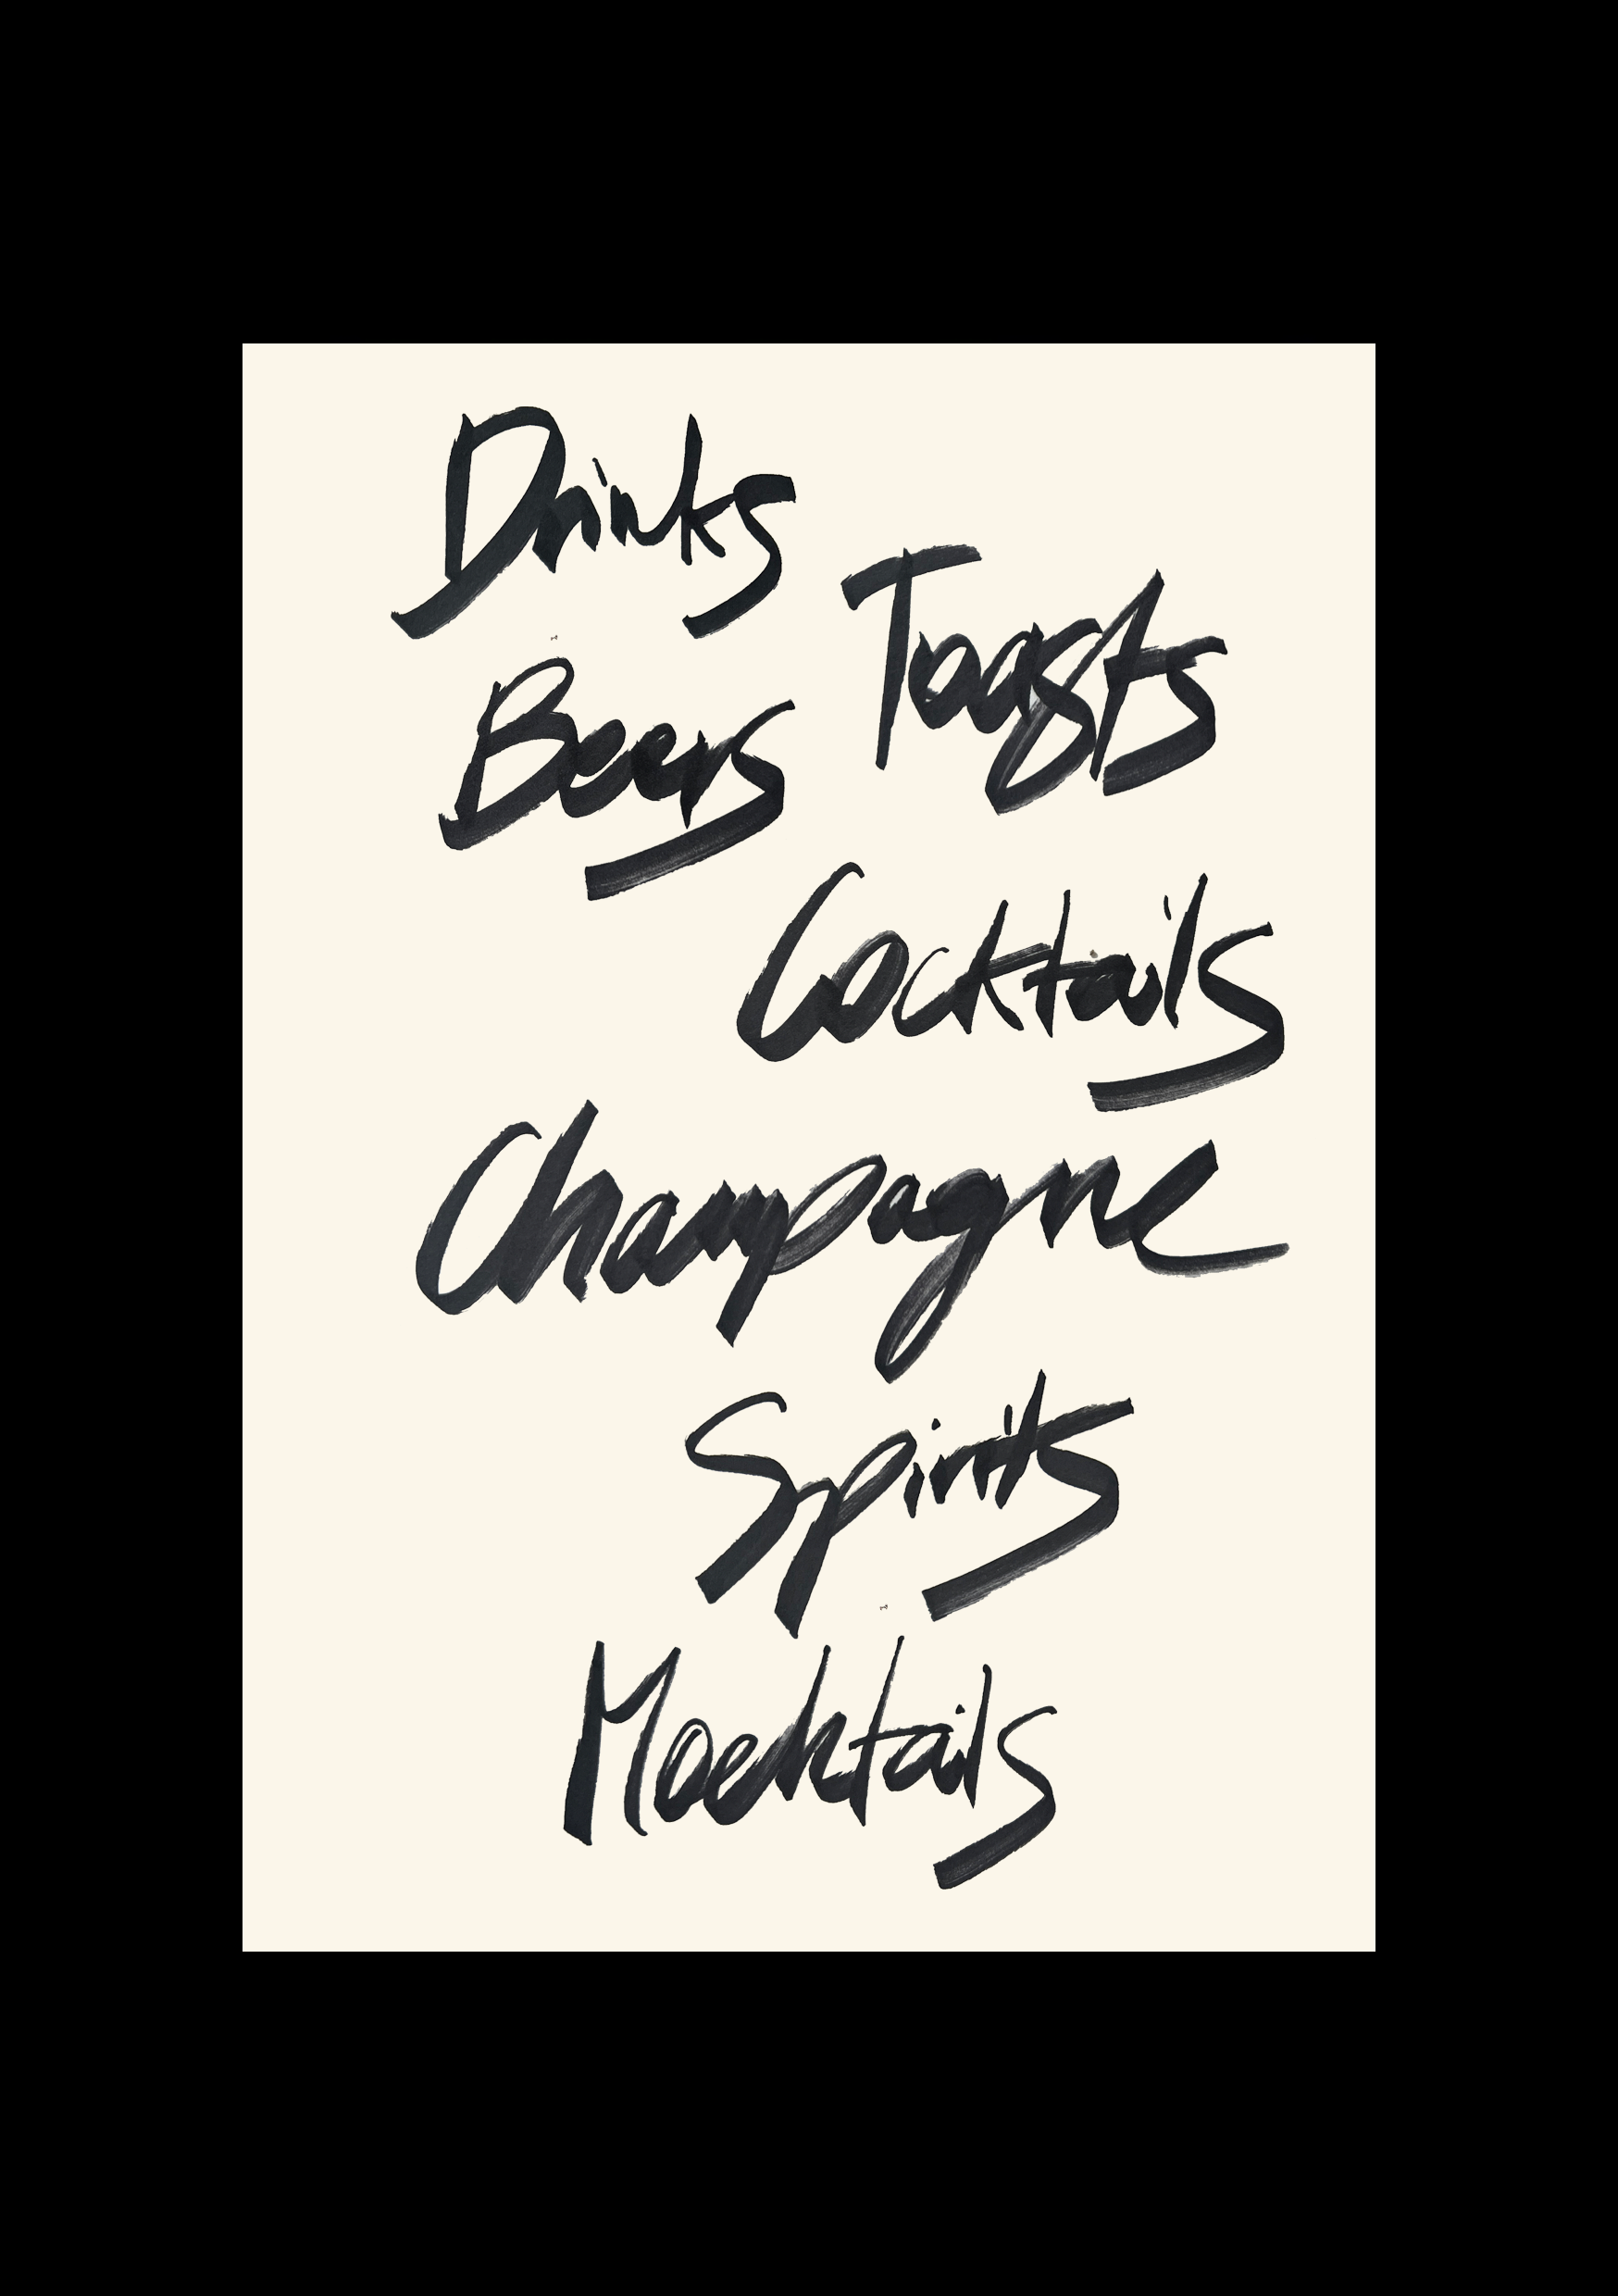 Drinks
Toasts
Beers
Cocktails
Champagne
Spirits
Mocktails